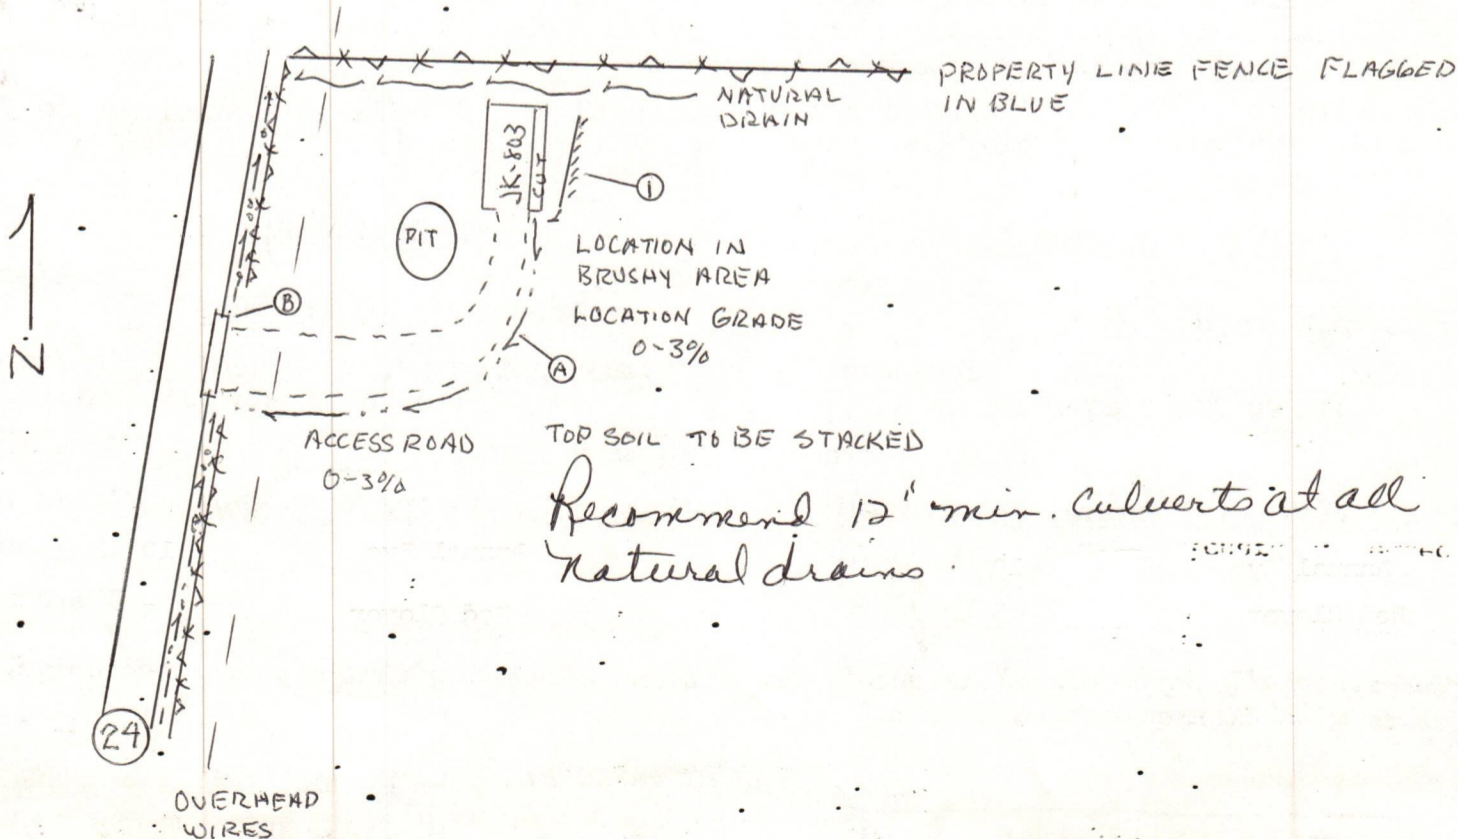 PROPERTY LINE FENCE FLAGGED
IN BLUE
NATURAL
DRAIN
JK-803
CUT
1
PIT
LOCATION IN
BRUSHY AREA
B
LOCATION GRADE
0-3%
N
A
ACCESS ROAD
0-3%
TOP SOIL TO BE STACKED
Recommend 12" min. culverts at all
natural drains.
24
OVERHEAD
WIRES